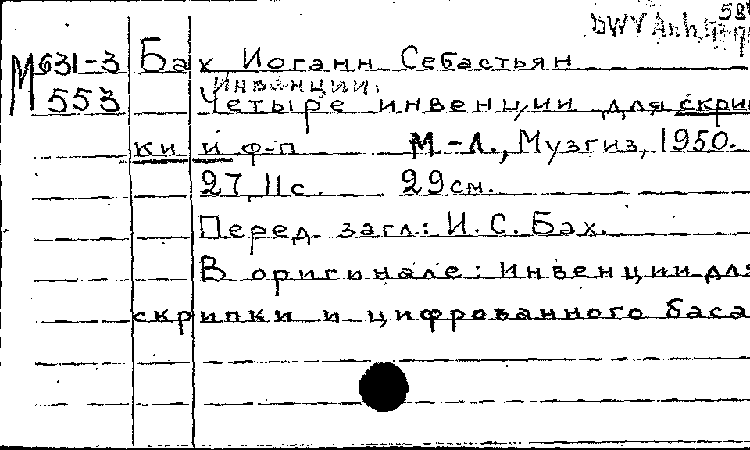 М631-3 Бах Иоганн Себастьян
Инвенции.
553 Четыре инвенции для скрип
ки и ф-п М-Л., Музгиз, 1950.
27, 11с. 29см.
Перед загл.: И. С. Бах.
В оригинале: Инвенции для
скрипки и цифрованного баса